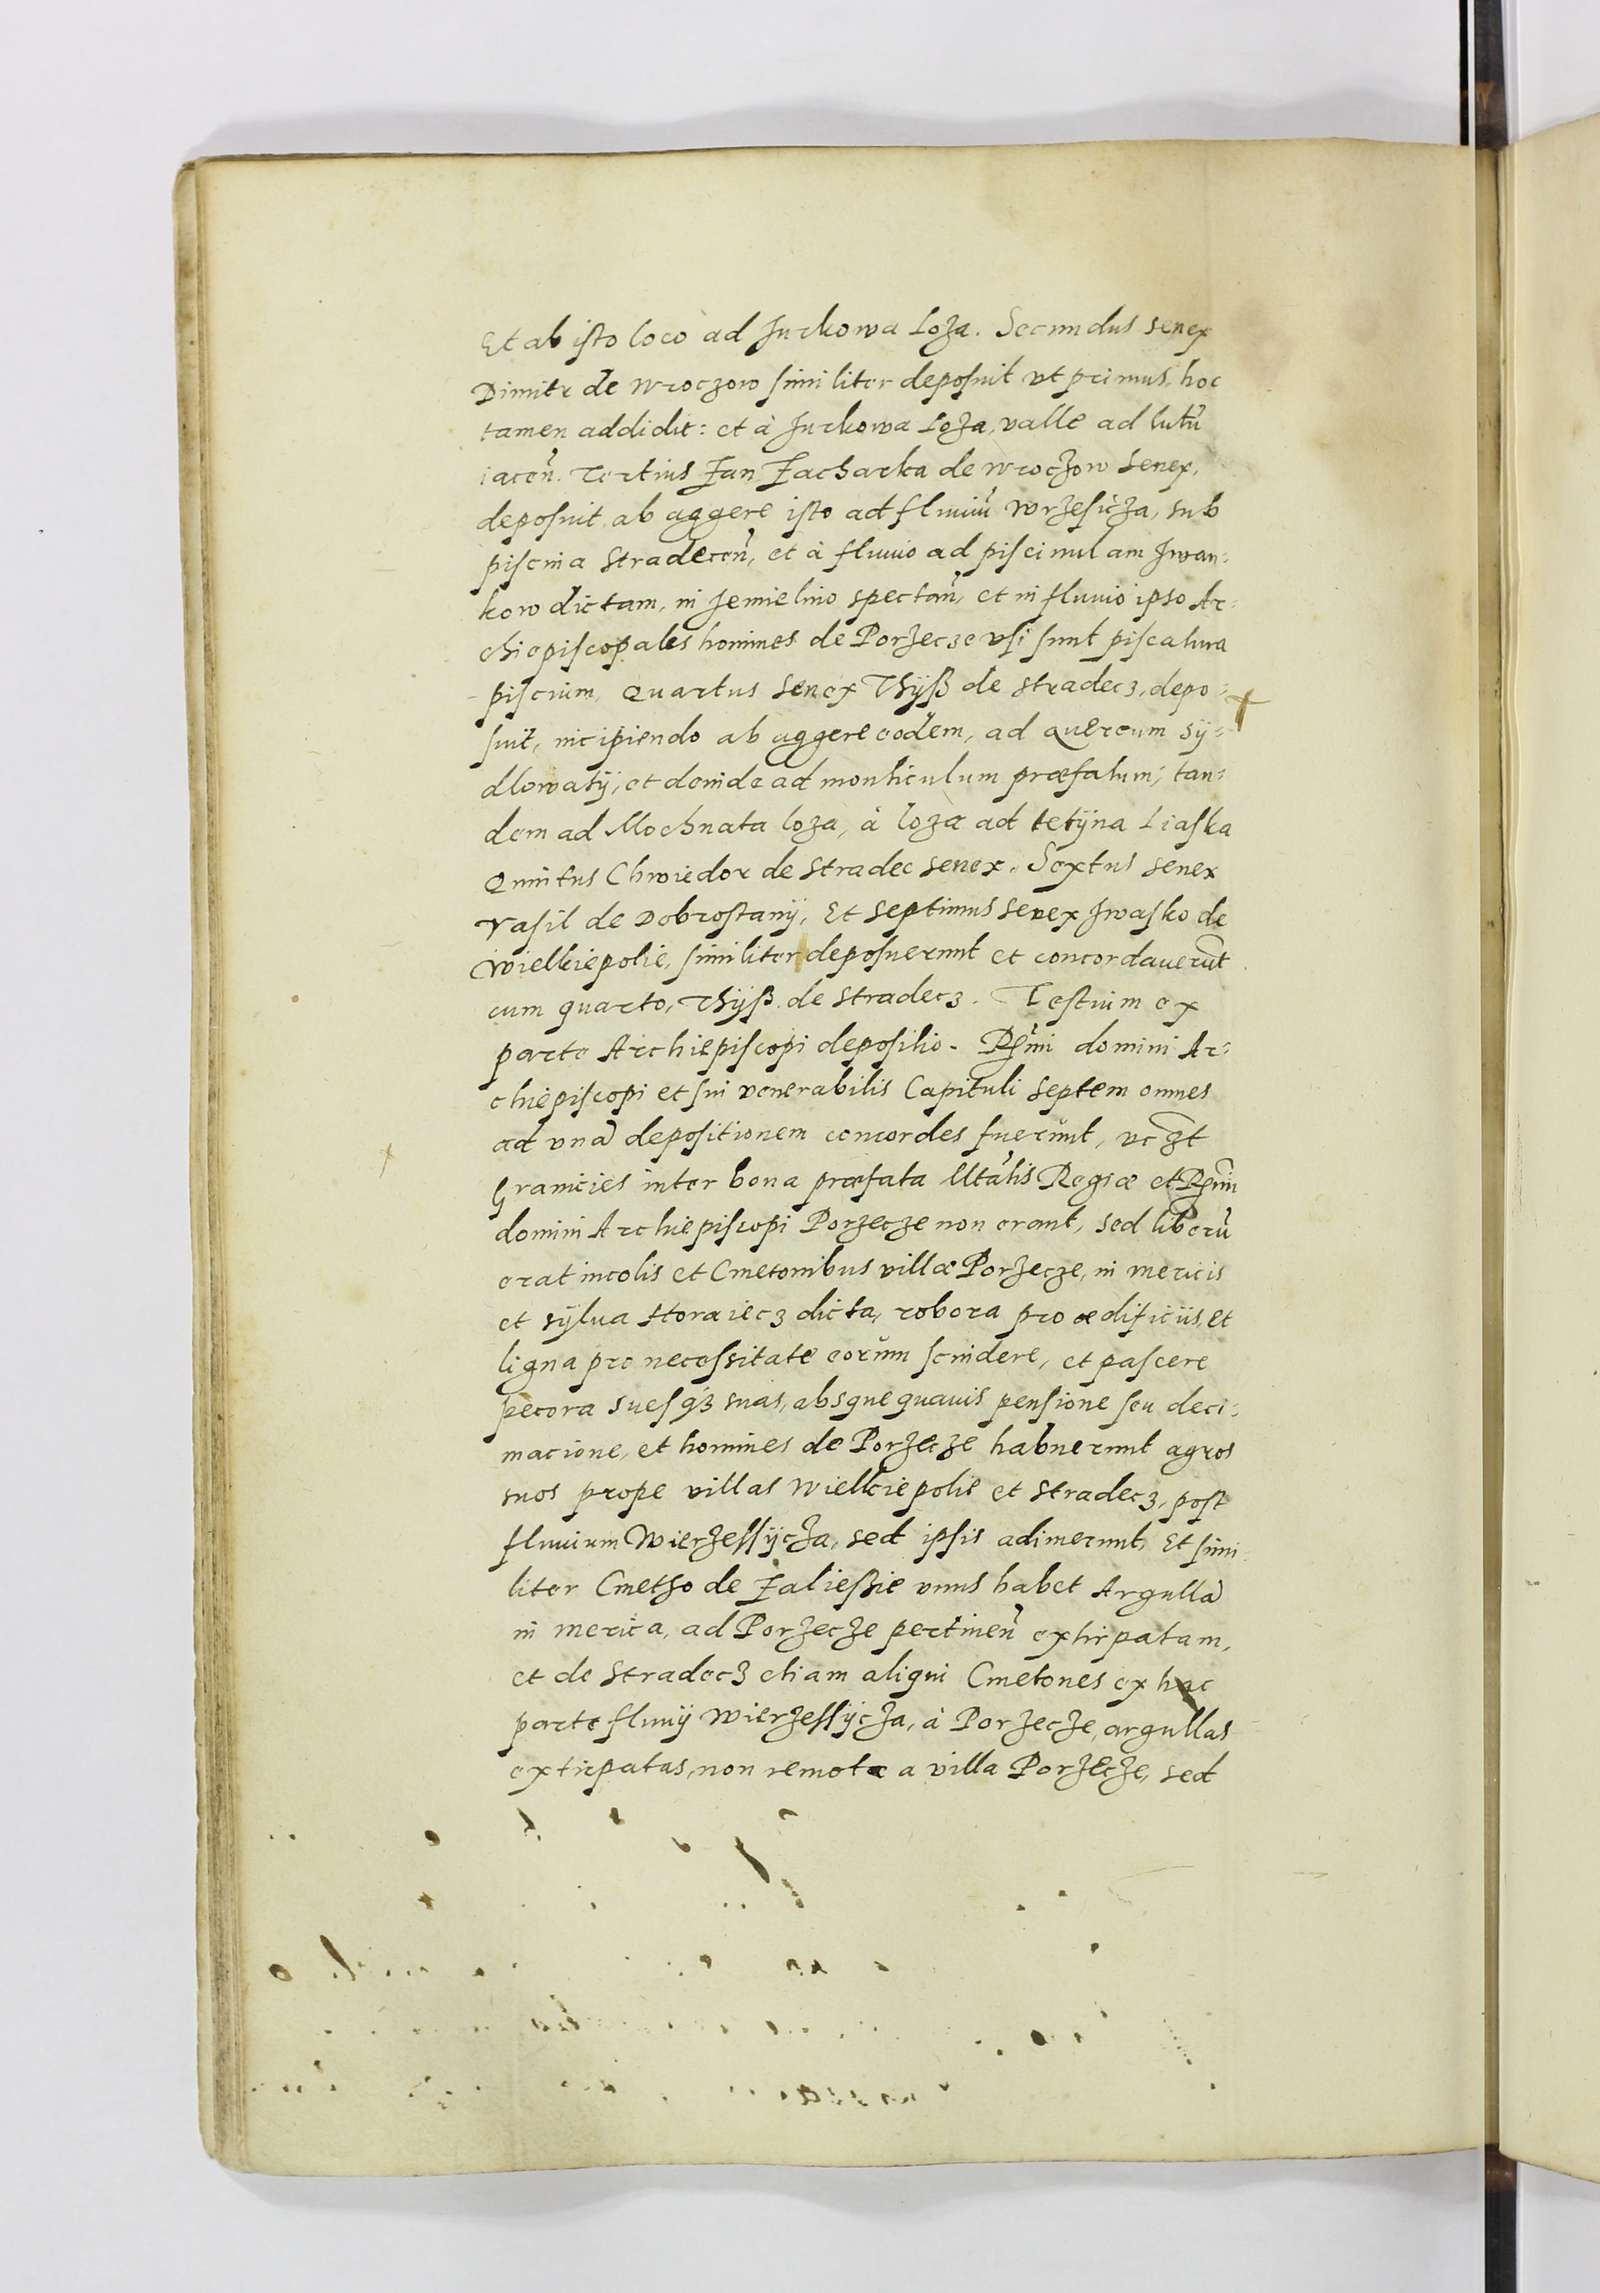 Et ab isto loco ad Jurkowa Loza. Secundus senex
Dimitr de Wroczow similiter deposuit vt primus, hoc
tamen addidit: et à Jurkowa Loza, valle ad lutũ
iaceñ. Tertius Zan Zacharka de Wroczow senex,
deposuit ab aggere isto ad fluuiũ Wrzesicza, sub
piscina Stradeceñ, et à fluuio ad piscinulam Jwan:
kow dictam, in Jemielino spectañ, et in fluuio ipso Ar:
chiepiscopales homines de Porzecze vsi sunt piscatura
piscium, Quartus senex Thyß de Stradecz, depo:
suit, incipiendo ab aggere eodem, ad quercum sy:
dlowaty, et deinde ad monticulum præfatum, tan:
dem ad Mochnata loza, à loza ad tetyna Liaska
Quintus Chwiedor de Stradec senex. Sextus senex
Vasil de Dobrostany, Et septimus senex Jwasko de
Wielkiepolie, similiter deposuerunt et concordauerũt
cum quarto, Thyß de Stradecz. Testium ex
parte Archiepiscopi depositio. Rm̃i domini Ar:
chiepiscopi et sui venerabilis Capituli septem omnes
ad vnã depositionem concordes fuerunt, vczt
Granicies inter bona præfata Mtãtis Regiæ et Rm̃i
domini Archiepiscopi Porzecze non erant, sed liberũ
erat incolis et Cmetonibus villæ Porzecze, in mericis
et sylua Horaiecz dicta, robora pro ædificiis, et
ligna pro necessitate eorum scindere, et pascere
pecora suesqз suas, absque quauis pensione seu deci:
macione, et homines de Porzecze habuerunt agros
suos prope villas Wielkiepolie et Stradecz, post
fluuium Wierzessycza, sed ipsis adimerunt, Et simi
liter Cmetho de Zaließie vnus habet Argullã
in merica, ad Porzecze pertineñ extirpatam,
et de Stradecz etiam aliqui Cmetones ex hac
parte fluuij Wierzessycza, à Porzecze, argullas
extirpatas, non remotæ a villa Porzecze, sed